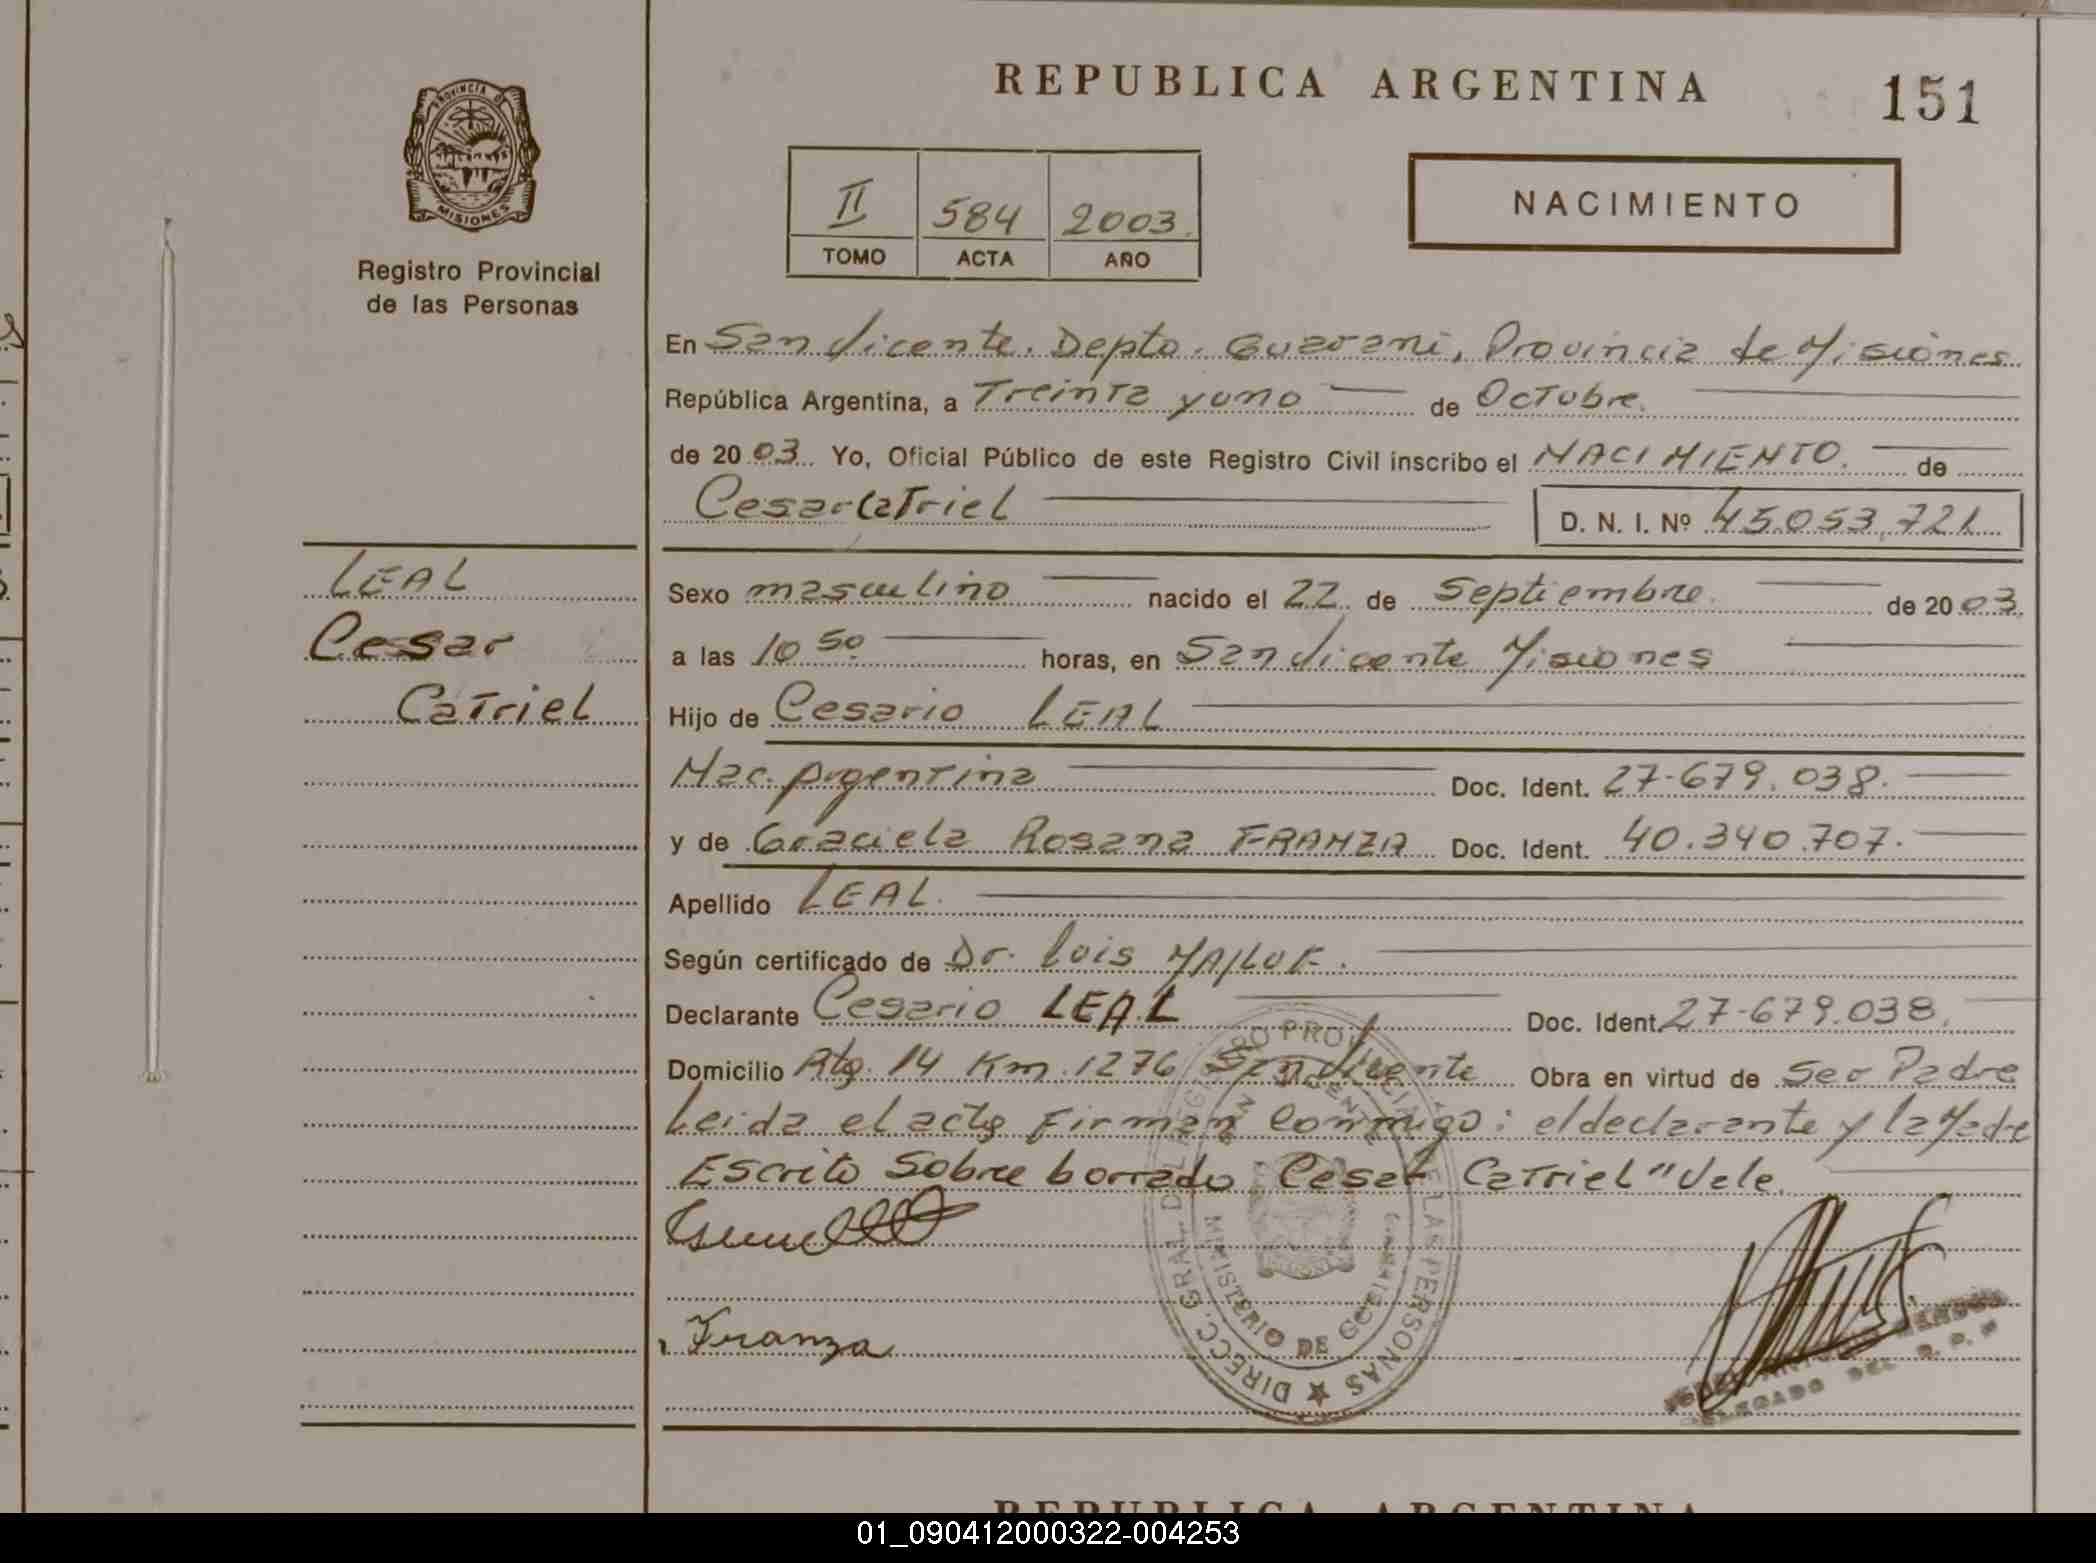 REPUBLICA ARGENTINA
151
PROVINCIA DE
MISIONES
Registro Provincial
de las Personas
II 584 2003.
TOMO ACTA AÑO
NACIMIENTO
En San Vicente. Depto. Guarani, Provincia de Misiones
República Argentina, a Treinta y uno de Octubre.
de 2003. Yo, Oficial Público de este Registro Civil inscribo el NACIMIENTO. de
Cesar Catriel D. N. I. Nº 45.053.721
LEAL
Cesar
Catriel
Sexo masculino nacido el 22 de Septiembre. de 2003.
a las 10 50 horas, en San Vicente Misiones
Hijo de Cesario LEAL
Nac. Argentina Doc. Ident. 27-679.038.
y de Graciela Rosana FRANZA Doc. Ident. 40.340.707.
Apellido LEAL.
Según certificado de Dr. Luis
Declarante Cesario LEAL Doc. Ident. 27-679.038.
Domicilio Km. 1276 San Vicente Obra en virtud de Ser Padre
Leida el acta Firman Conmigo: el declarante y la Madre
Escrito Sobre borrado Cesar Catriel" Vale.
Franza
DIRECC. GRAL. DEL REGISTRO PROVINCIAL DE LAS PERSONAS
SAN VICENTE
MINISTERIO DE GOBIERNO
DELEGADO DEL R. P. P.
REPUBLICA ARGENTINA
01_090412000322-004253